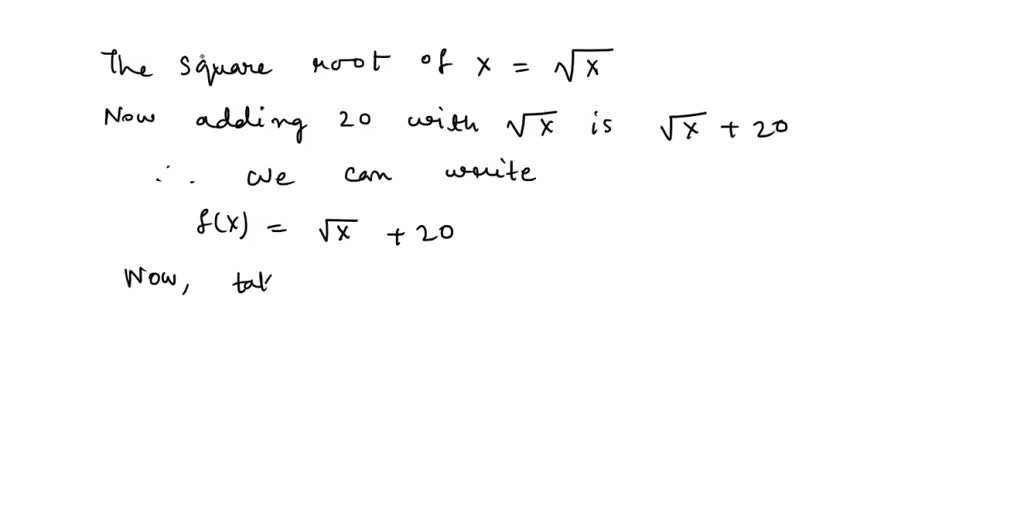 The square root of x = √x
Now adding 20 with √x is √x + 20
∴ we can write
f(x) = √x + 20
Now, tak